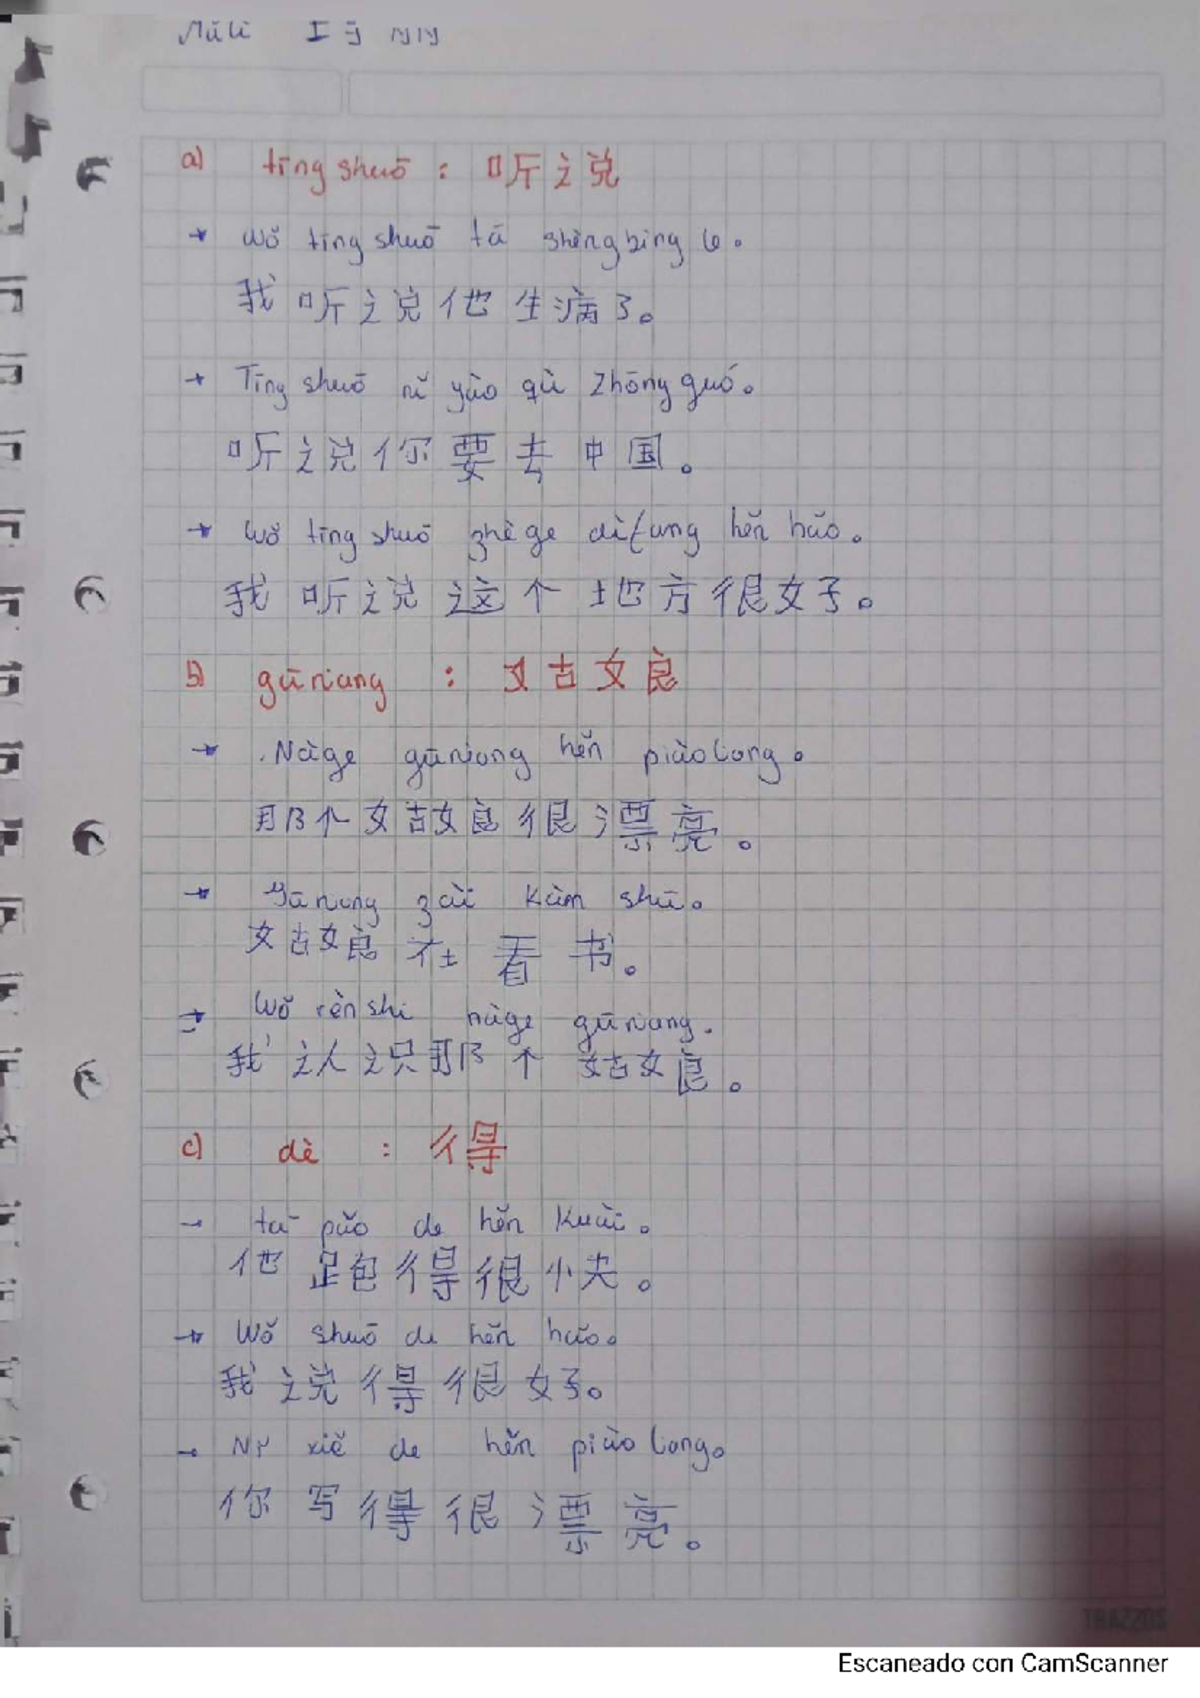 a) tīng shuō : 听说
→ Wǒ tīng shuō tā shēngbìng le。
我听说他生病了。
→ Tīng shuō nǐ yào qù Zhōng guó。
听说你要去中国。
→ Wǒ tīng shuō zhège dìfang hěn hǎo。
我听说这个地方很好。
b) gūniang : 姑娘
→ Nàge gūniang hěn piàoliang。
那个姑娘很漂亮。
→ Gūniang zài kàn shū。
姑娘在看书。
→ Wǒ rènshi nàge gūniang.
我认识那个姑娘。
c) dè : 得
→ tā pǎo de hěn kuài。
他跑得很快。
→ Wǒ shuō de hěn hǎo。
我说得很好。
→ Nǐ xiě de hěn piàoliang。
你写得很漂亮。
TRAZZOS
Escaneado con CamScanner